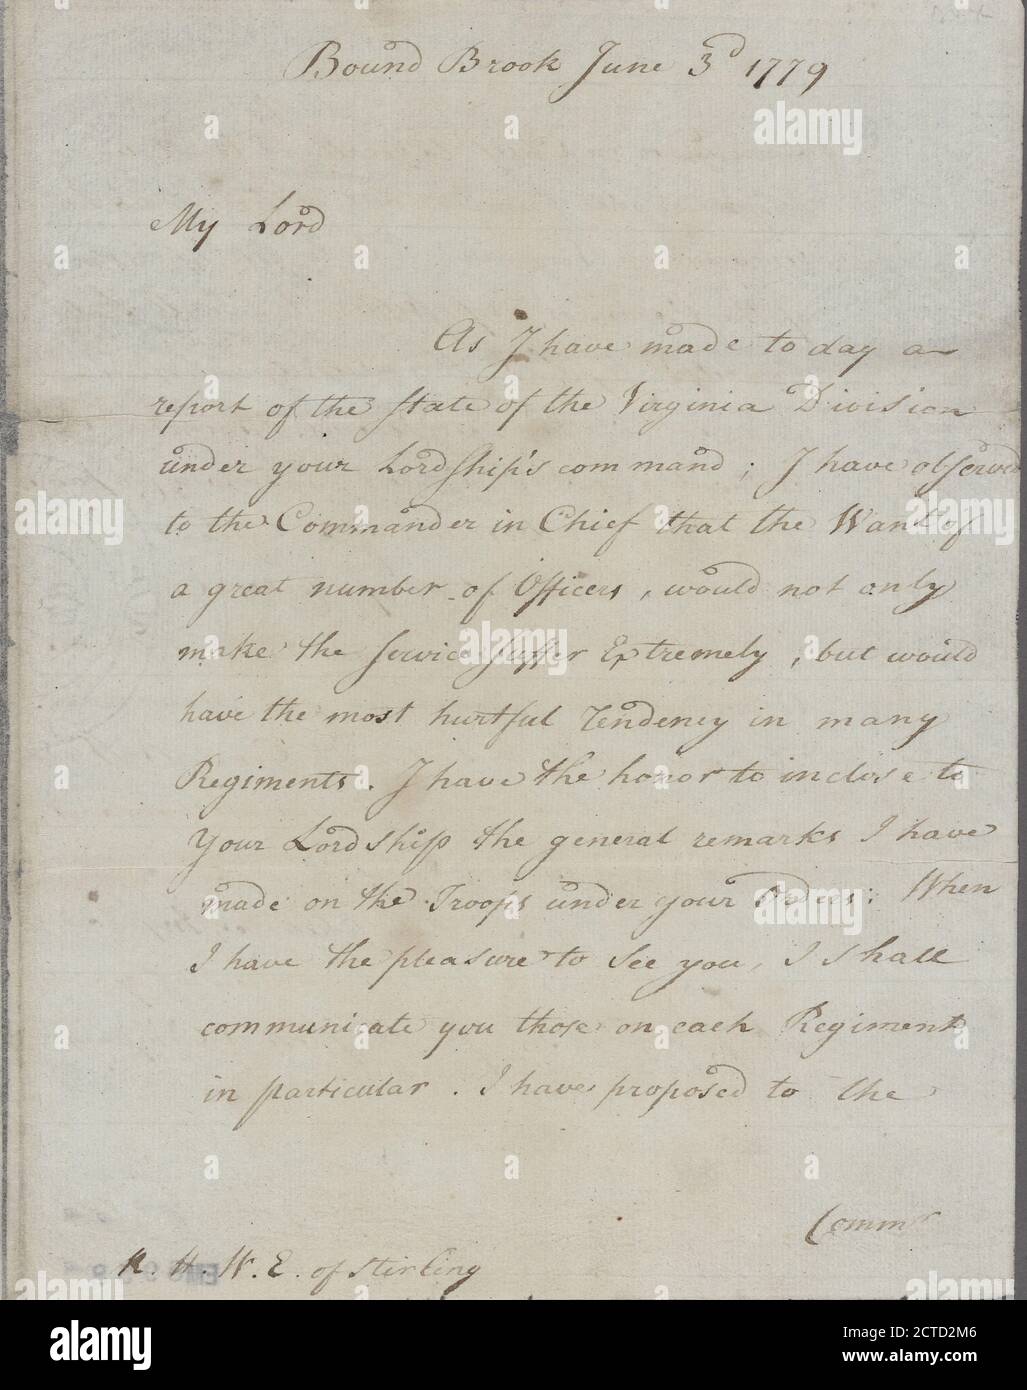 Bound Brook June 3d 1779
My Lord
As I have made to day a
report of the State of the Virginia Division
under your LordShip's command; I have observed
to the Commander in Chief that the Want of
a great number of Officers, would not only
make the Service Suffer Extremely, but would
have the most hurtful Tendency in many
Regiments. I have the honor to inclose to
Your LordShip the general remarks I have
made on the Troops under your Orders: When
I have the pleasure to See you, I Shall
communicate you those on each Regiment
in particular. I have proposed to the
Commr
R. H. W. E. of Stirling
alamy
alamy
Image ID: 2CTD2M6
www.alamy.com